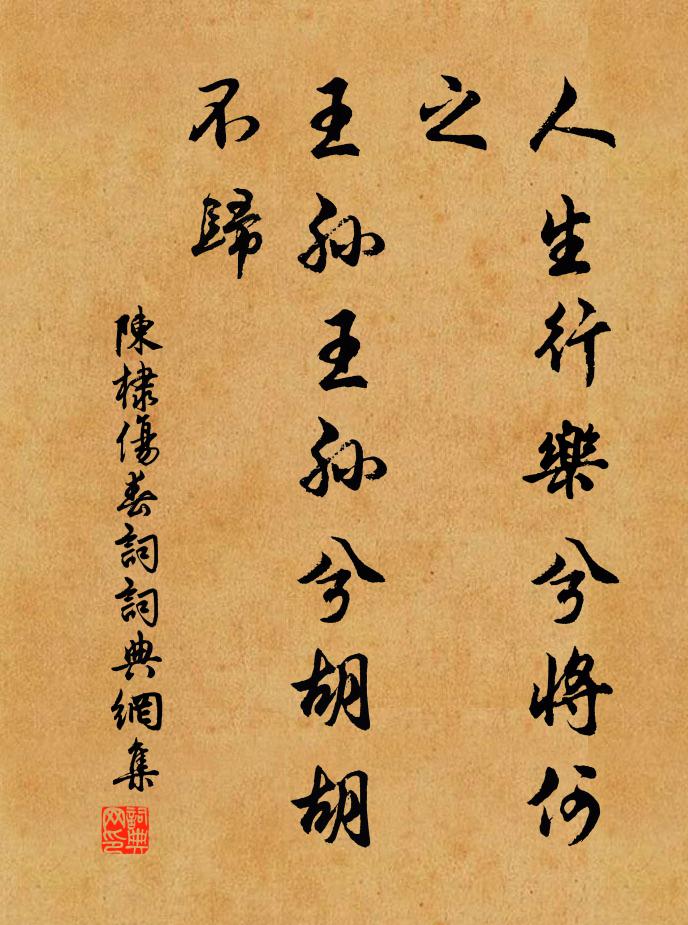 人生行樂兮將何
之
王孫王孫兮胡胡
不歸
陳棣傷春詞詞典網集
詞典网印